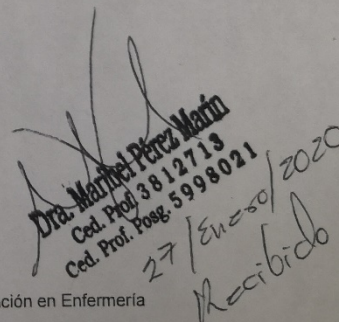 Dra. Maribel Pérez Marín
Ced. Prof. 3812713
Ced. Prof. Posg. 5998021
27/Enero/2020
Recibido
ción en Enfermería